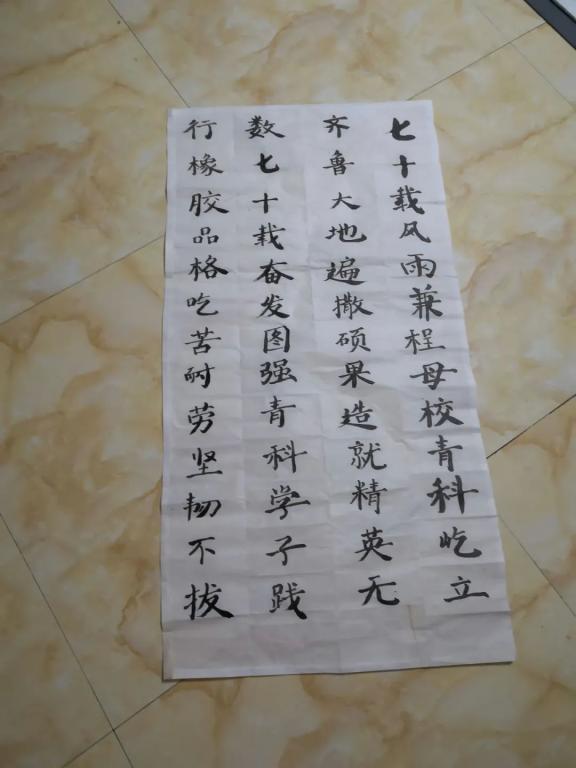 七十载风雨兼程母校青科屹立
齐鲁大地遍撒硕果造就精英无
数七十载奋发图强青科学子践
行橡胶品格吃苦耐劳坚韧不拔